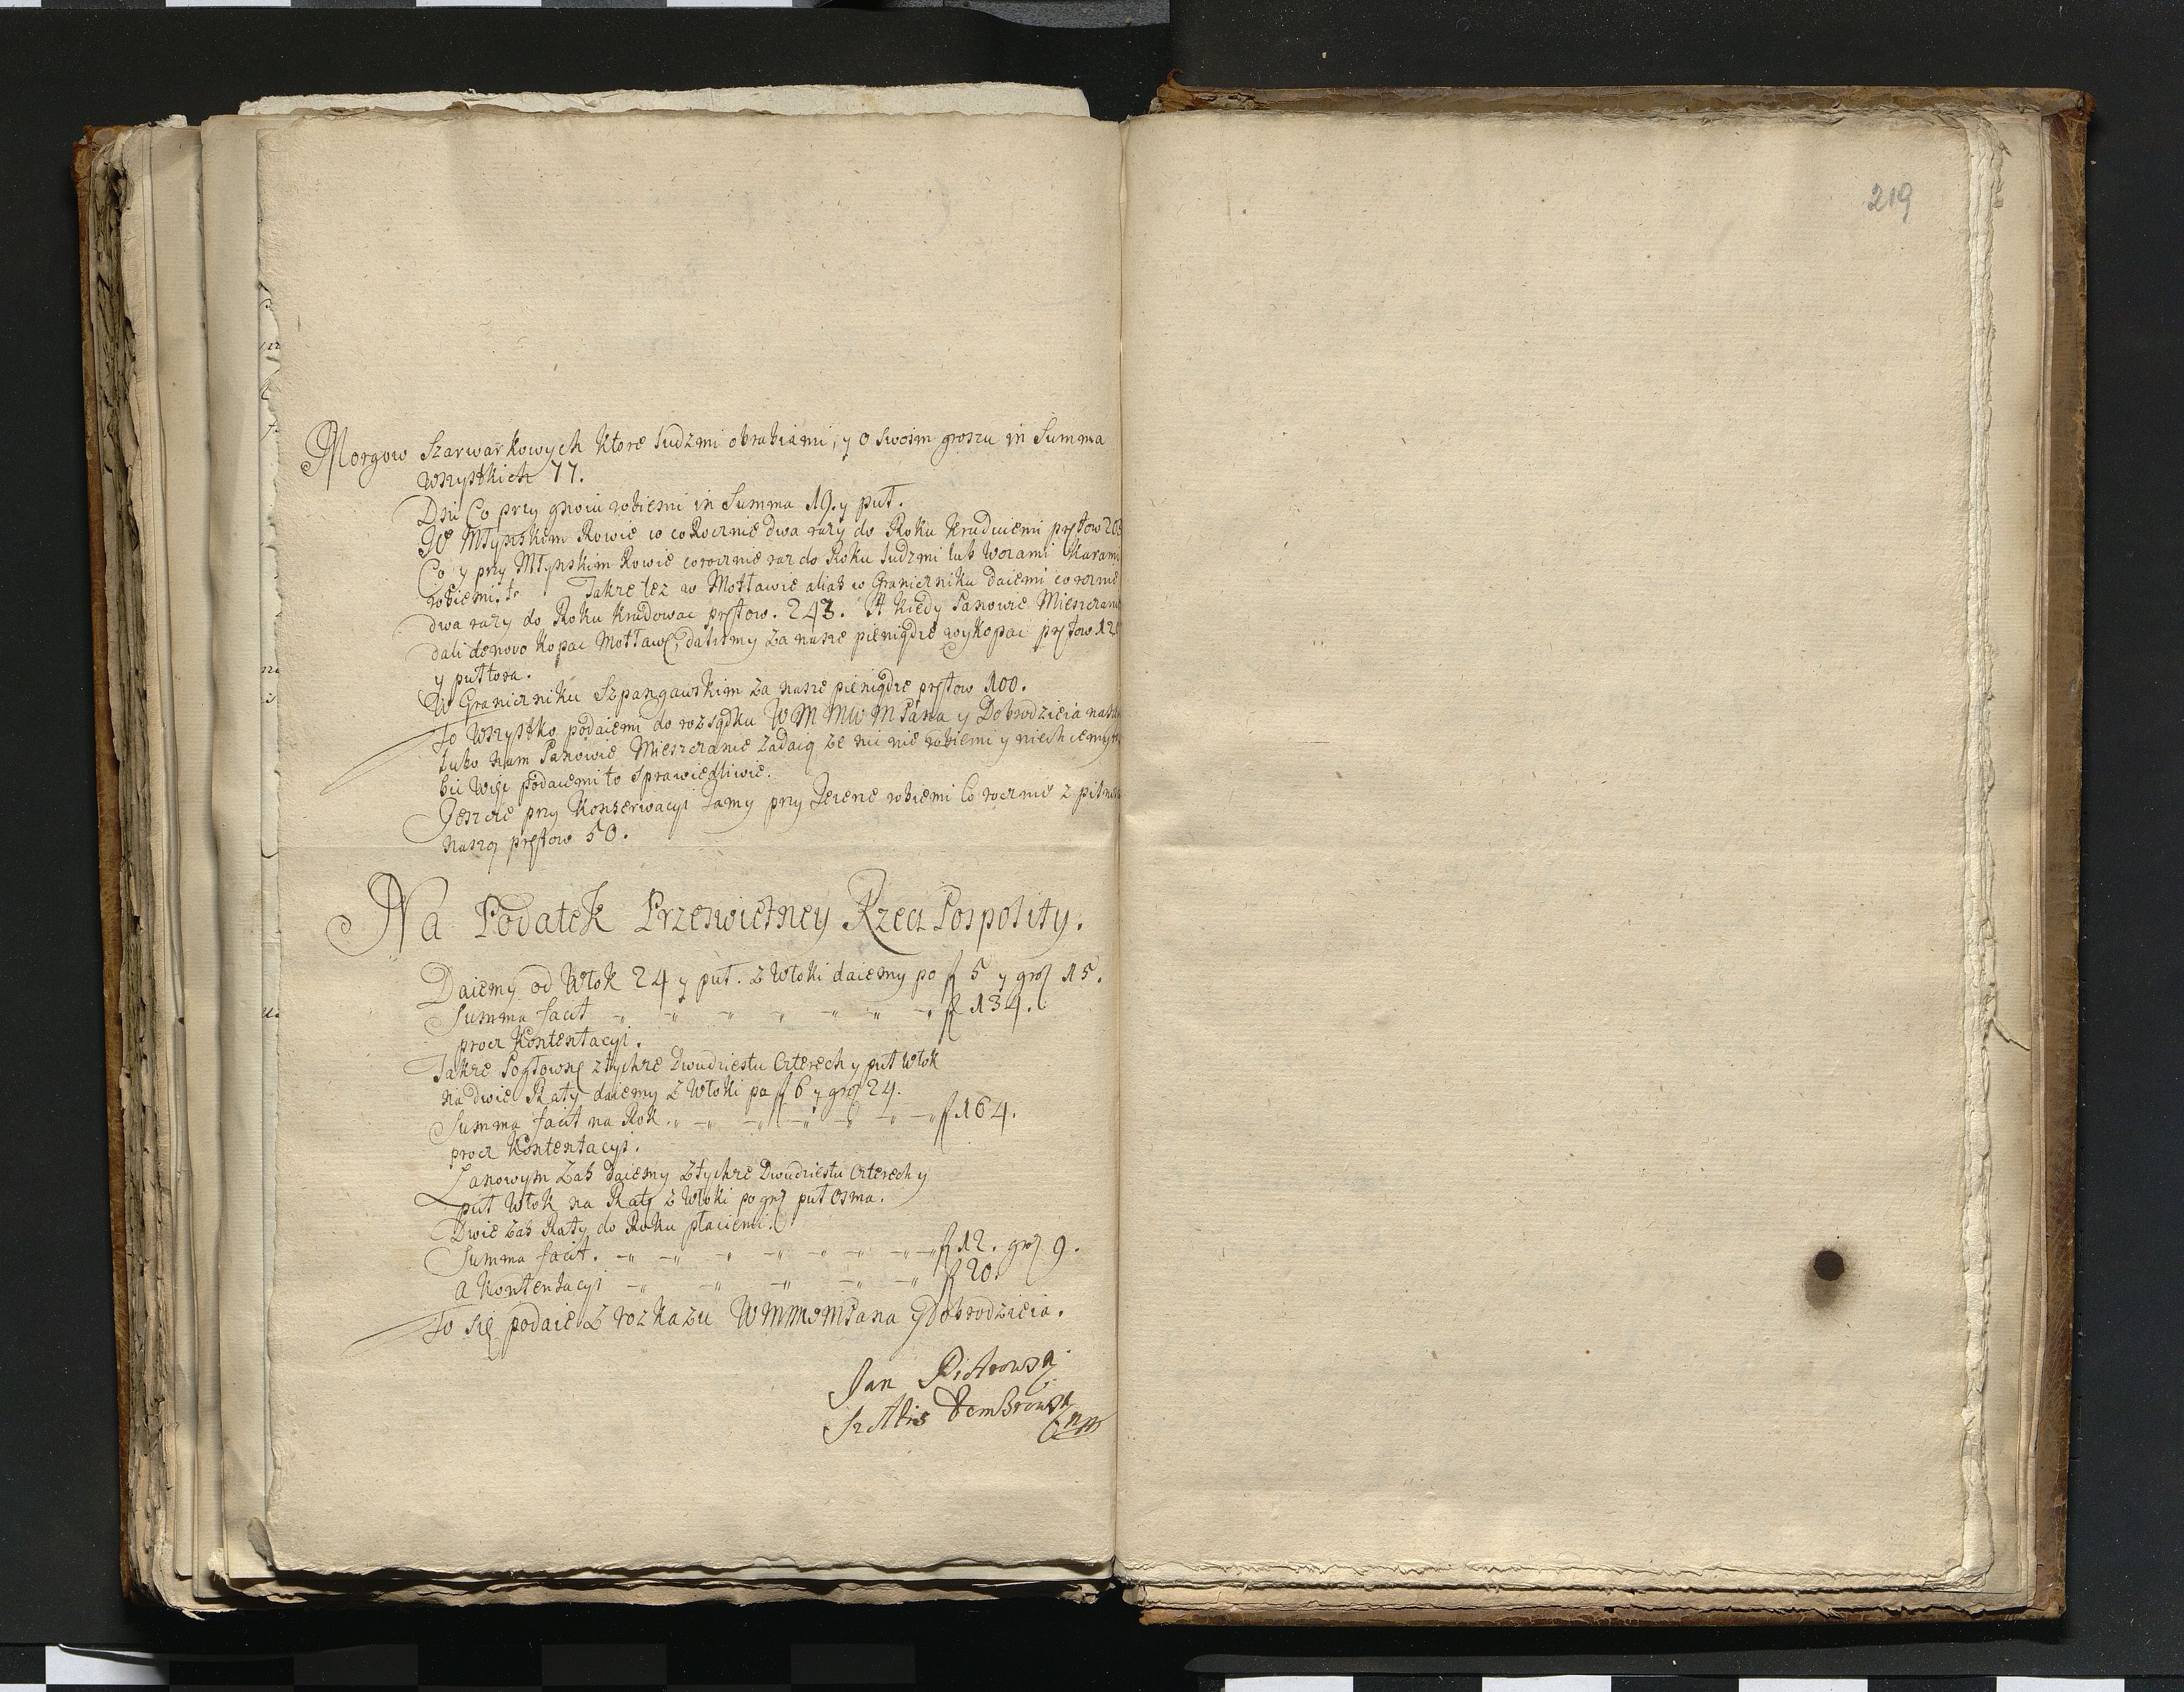 219
Morgow Szarwarkowych Ktore ludzmi obrabiami, y o swoim groszu in Summa
wszystkich 77.
Dni Co przy gnoiu robiemi in Summa 19. y puł.
W Młynskim Rowie co coRocznie dwa razy do Roku kruduiemi prętow
Co y przy Młynskim Rowie corocznie raz do Roku ludzmi lub Wozami Karami
robiemi. Takze tez w Motławie alias w Graniczniku daiemi corocznie
dwa razy do Roku krudowac prętow. 243. A kiedy Panowie Mieszczanie
dali denovo kopac Motławę, dalismy za nasze pieniądze wykopac prętow
y pułtora.
W Graniczniku Szpangawskim za nasze pieniądze prętow 100.
To wszystko podaiemi do rozsądku WMMWMPana y Dobrodzieia
lubo nam Panowie Mieszczanie zadaią ze nic nie robiemi y niechcemy
bic Więc podaiemi to sprawiedliwie.
Jeszcze przy Konserwacyi Tamy przy Jezierze robiemi Co rocznie z
naszą prętow 50.
Na Podatek Przeswietney Rzecz Pospolity.
Daiemy od Włok 24 y puł. z Włoki daiemy po fl 5 y groſ 15.
Summa facit fl 134.
procz Kontentacyi.
Takze Pogłowne z tychze Dwudziestu Czterech y puł Włok
na dwie Raty daiemy z Włoki po fl 6 y groſ 24.
Summa facit na Rok fl 164.
procz Kontentacyi.
Lanowym zas daiemy z tychze Dwudziestu Czterech y
puł Włok na Ratę z Włoki po gr puł osma.
Dwie zas Raty do Roku płaciemi.
Summa facit. fl 12. groſ 9.
a Kontentacyi fl 20.
To się podaie z rozkazu WMMWMPana y Dobrodzieia.
Jan Piotrowski